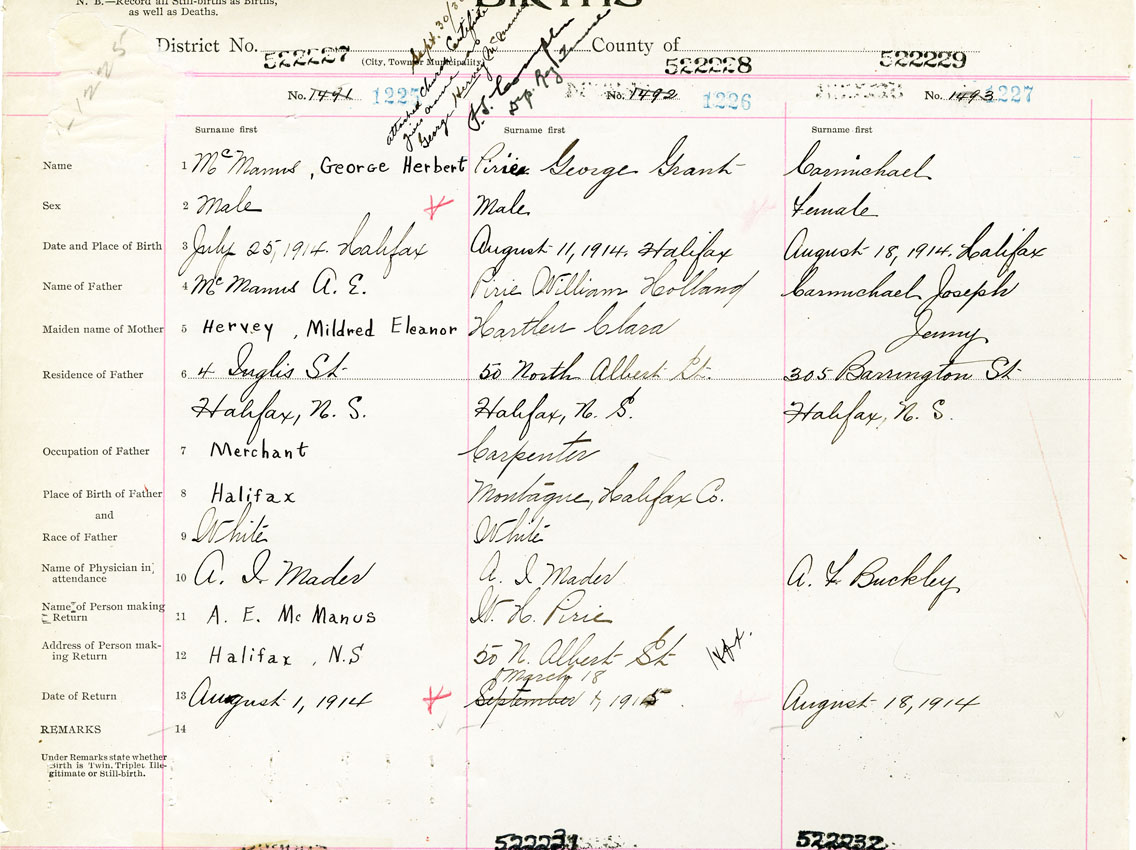 N. B.—Record all Still-births as Births,
as well as Deaths.
BIRTHS
District No.
County of
(City, Town or Municipality)
522227
522228
522229
1225
Sept. 30/3
attached church Certificate
gives name as
George Hervey McManus
Dp. Reg.
No. 1491 1225
No. 1492 1226
No. 1493 1227
Surname first
Surname first
Surname first
Name 1 McManus, George Herbert Pirie George Grant Carmichael
Sex 2 Male Male Female
Date and Place of Birth 3 July 25, 1914. Halifax August 11, 1914. Halifax August 18, 1914. Halifax
Name of Father 4 McManus A. E. Pirie William Holland Carmichael Joseph
Maiden name of Mother 5 Hervey, Mildred Eleanor Hartlen Clara Jenny
Residence of Father 6 4 Inglis St 50 North Albert St. 305 Barrington St
Halifax, N. S. Halifax, N. S. Halifax, N. S.
Occupation of Father 7 Merchant Carpenter
Place of Birth of Father 8 Halifax Montague, Halifax Co.
and
Race of Father 9 White White
Name of Physician in attendance 10 A. I. Mader A. I. Mader A. F. Buckley
Name of Person making Return 11 A. E. McManus W. H. Pirie
Address of Person making Return 12 Halifax, N.S 50 N. Albert St Hfx.
March 18
Date of Return 13 August 1, 1914 September 1, 1915 August 18, 1914
REMARKS 14
Under Remarks state whether
Birth is Twin, Triplet, Ille-
gitimate or Still-birth.
522231
522232